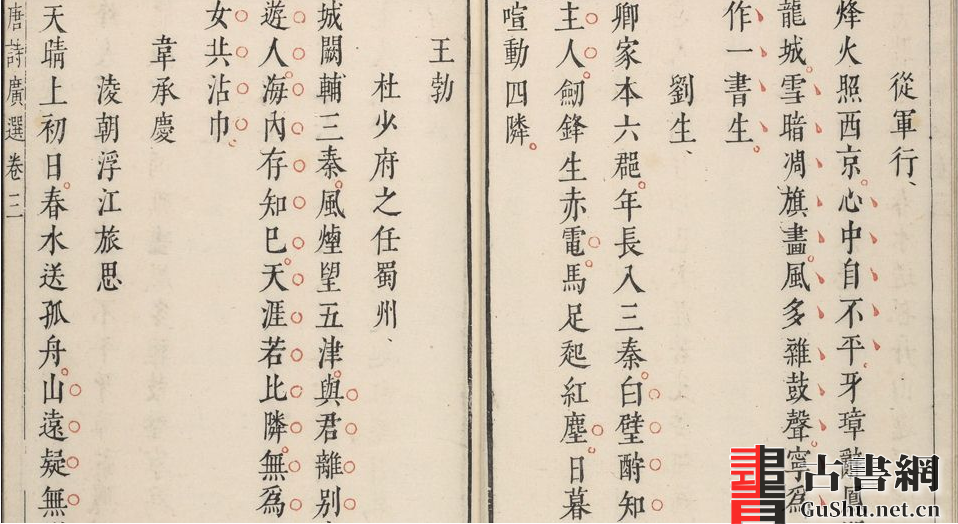 從軍行、
烽火照西京心中自不平牙璋辭鳳
龍城雪暗凋旗畫風多雜鼓聲寧爲
作一書生
劉生、
卿家本六郡年長入三秦白璧酧知
主人劒鋒生赤電馬足起紅塵日暮
喧動四隣
王勃
杜少府之任蜀州、
城闕輔三秦風煙望五津與君離别
遊人海內存知已天涯若比隣無爲
女共沾巾
韋承慶
淩朝浮江旅思
天晴上初日春水送孤舟山遠疑無
唐詩廣選 卷三
古書網
GuShu.net.cn